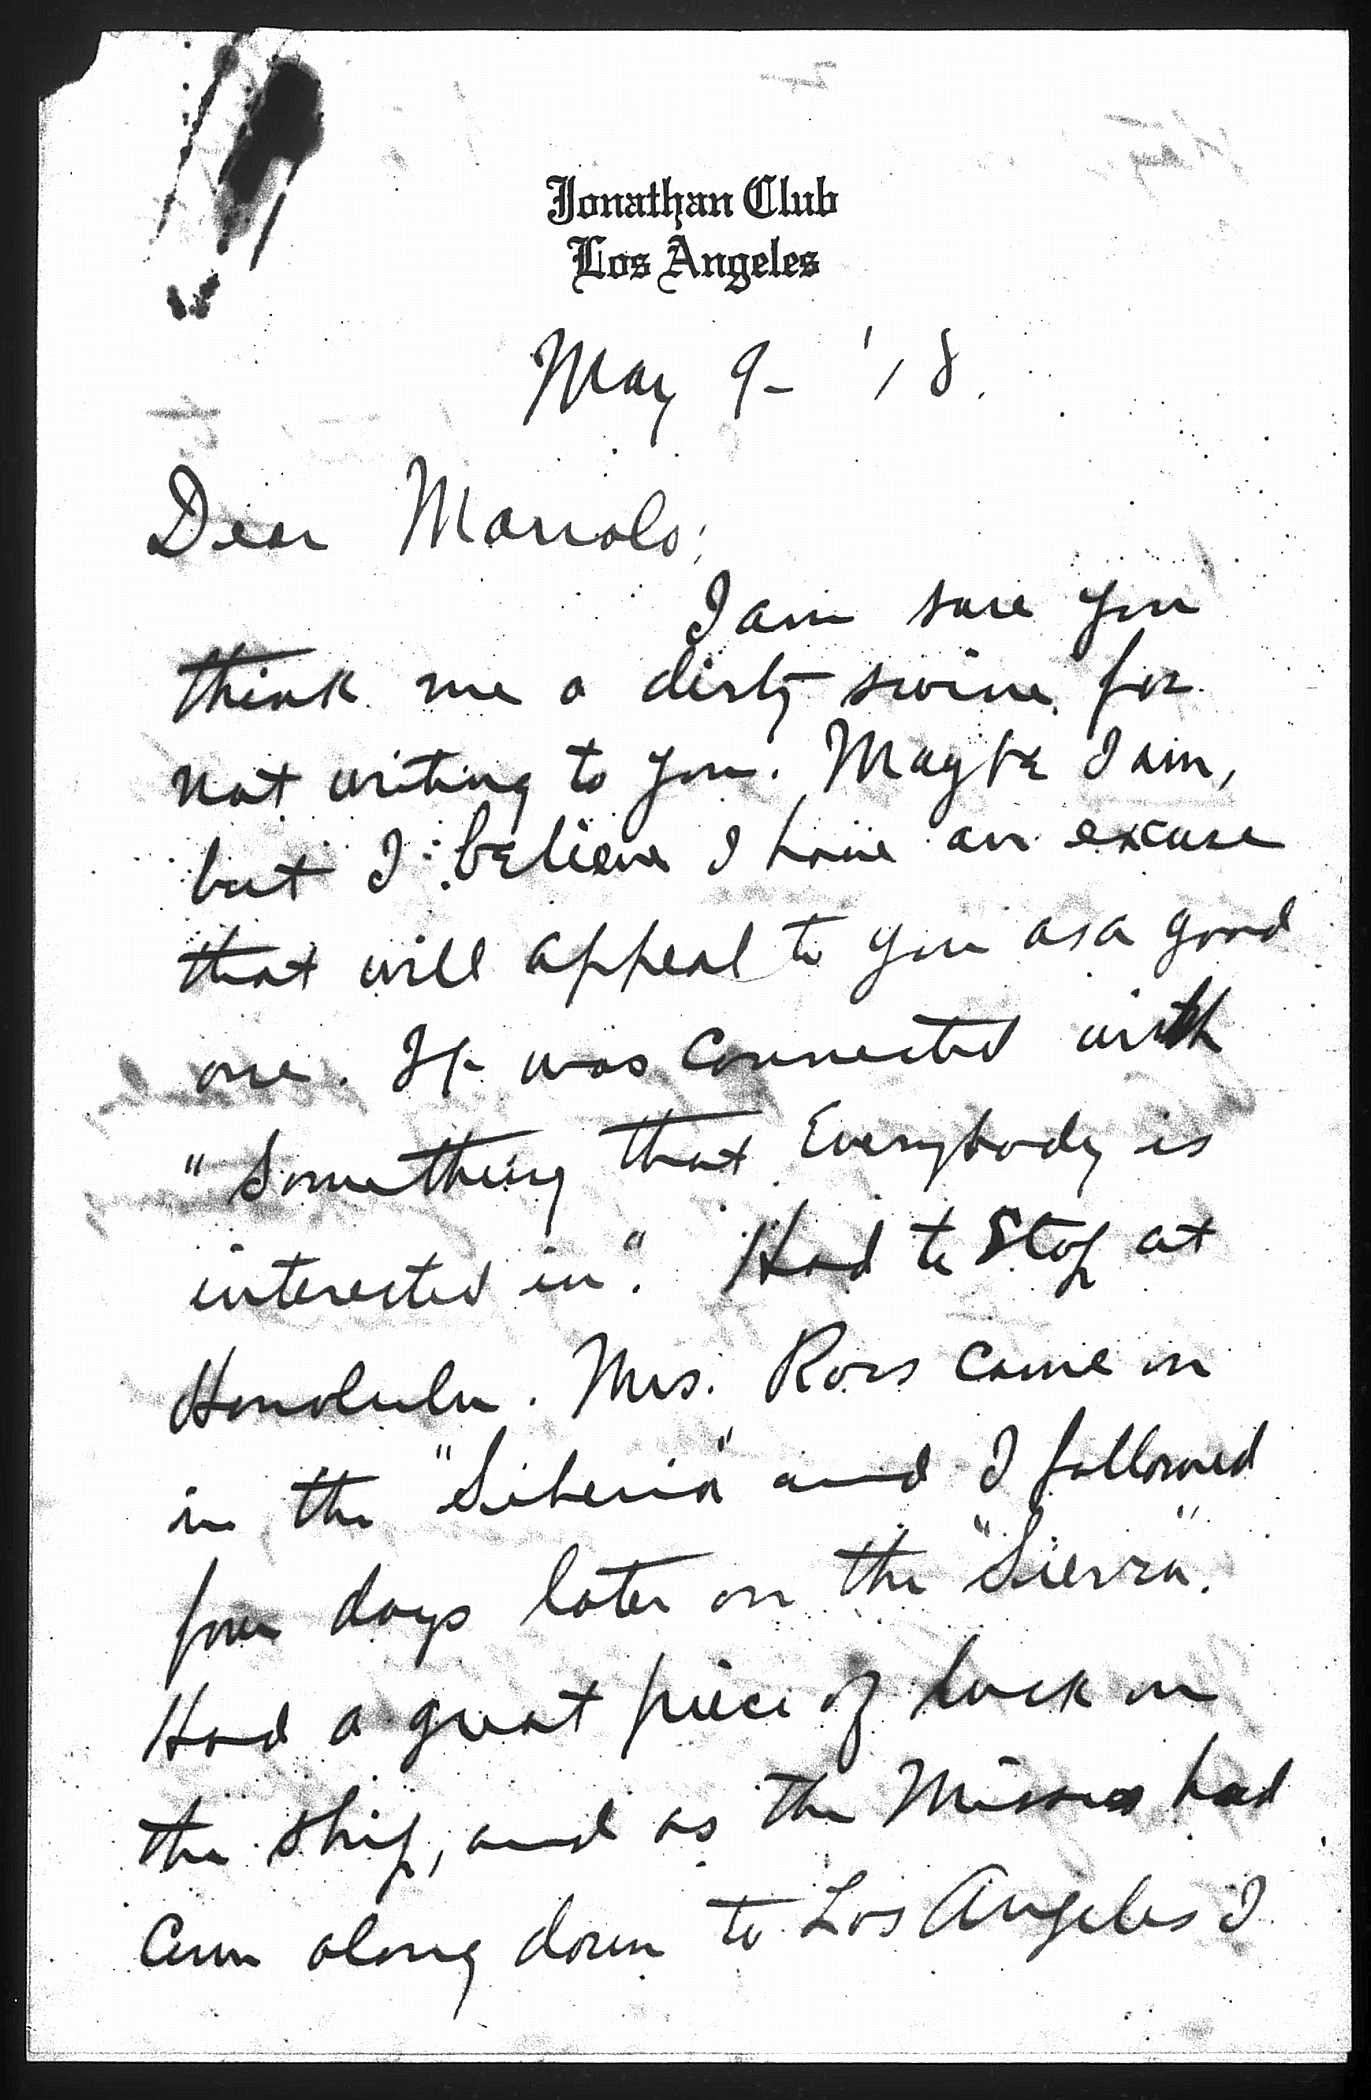 Jonathan Club
Los Angeles
May 9- '18.
Dear Marrolo:
I am sure you
think me a dirty swine for
not writing to you. Maybe I am,
but I believe I have an excuse
that will appeal to you as a good
one. It was connected with
"Something that Everybody is
interested in". Had to stop at
Honolulu. Mrs. Ross came on
in the "Siberia" and I followed
four days later on the "Sierra".
Had a great piece of luck on
the ship, and as the Missus had
come along down to Los Angeles I